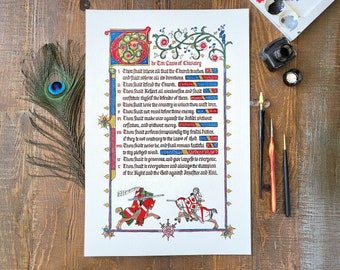 The Ten Laws of Chivalry
I Thou shalt believe all that the Church teaches
and shalt observe all its directions.
II Thou shalt defend the Church.
III Thou shalt respect all weaknesses, and shalt
constitute thyself the defender of them.
IV Thou shalt love the country in which thou wast born.
V Thou shalt not recoil before thine enemy.
VI Thou shalt make war against the Infidel without
cessation, and without mercy.
VII Thou shalt perform scrupulously thy feudal duties,
if they be not contrary to the Laws of God.
VIII Thou shalt never lie, and shalt remain faithful
to thy pledged word.
IX Thou shalt be generous, and give largess to everyone.
X Thou shalt be everywhere and always the champion
of the Right and the Good against Injustice and Evil.